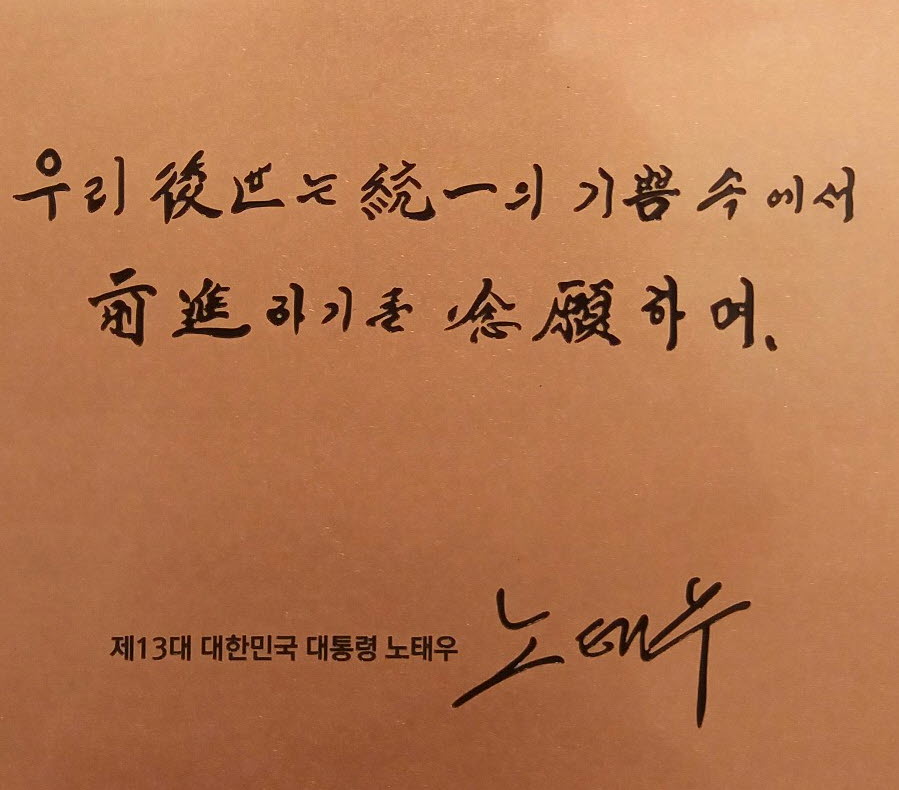 우리 後世는 統一의 기쁨 속에서
前進하기를 念願하며.
제13대 대한민국 대통령 노태우 노태우